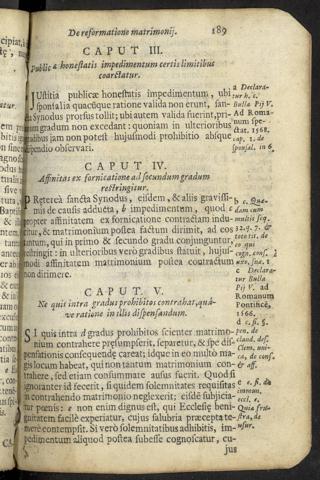 De reformatione matrimonij. 189
CAPUT III.
Publicæ honestatis impedimentum certis limitibus
coarctatur.
JUstitia publicæ honestatis impedimentum, ubi
sponsalia quacūque ratione valida non erunt, san-
cta Synodus prorsus tollit; ubi autem valida fuerint, pri-
mum gradum non excedant: quoniam in ulterioribus
gradibus jam non potest hujusmodi prohibitio absque
dispendio observari.
a Declara-
tur h. c.
Bulla Pij V.
Ad Roma-
num spe-
ctat. 1568.
cap. 1. de
sponsal. in 6.
CAPUT IV.
Affinitas ex fornicatione ad secundum gradum
restringitur.
PRætereà sancta Synodus, eisdem, & aliis gravissi-
mis de causis adducta, b impedimentum, quod
propter affinitatem ex fornicatione contractam indu-
citur, & matrimonium postea factum dirimit, ad eos
tantùm, qui in primo & secundo gradu conjunguntur,
restringit: in ulterioribus verò gradibus statuit, hujus-
modi affinitatem matrimonium postea contractum
non dirimere.
b c. Quæ-
dam cum
multis seq.
32. q. 7. &
toto tit. de
eo qui
cogn. cons.
uxo. sua.
c Declara-
tur Bulla
Pij V. ad
Romanum
Pontificē,
1566.
CAPUT V.
Ne quis intra gradus prohibitos contrahat, quá-
ve ratione in illis dispensandum.
SI quis intra d gradus prohibitos scienter matrimo-
nium contrahere præsumpserit, separetur, & spe dis-
pensationis consequendæ careat; idque in eo multò ma-
gis locum habeat, qui non tantùm matrimonium con-
trahere, sed etiam consummare ausus fuerit. Quòd si
ignoranter id fecerit, si quidem solemnitates requisitas
in contrahendo matrimonio neglexerit; eisdē subjicia-
tur pœnis: e non enim dignus est, qui Ecclesię beni-
gnitatem facilè experiatur, cujus salubria præcepta te-
merè contempsit. Si verò solemnitatibus adhibitis, im-
pedimentum aliquod postea subesse cognoscatur, cu-
jus
d c. si. §.
pen. de
cland. des.
Clem. uni-
ca, de cons.
& aff.